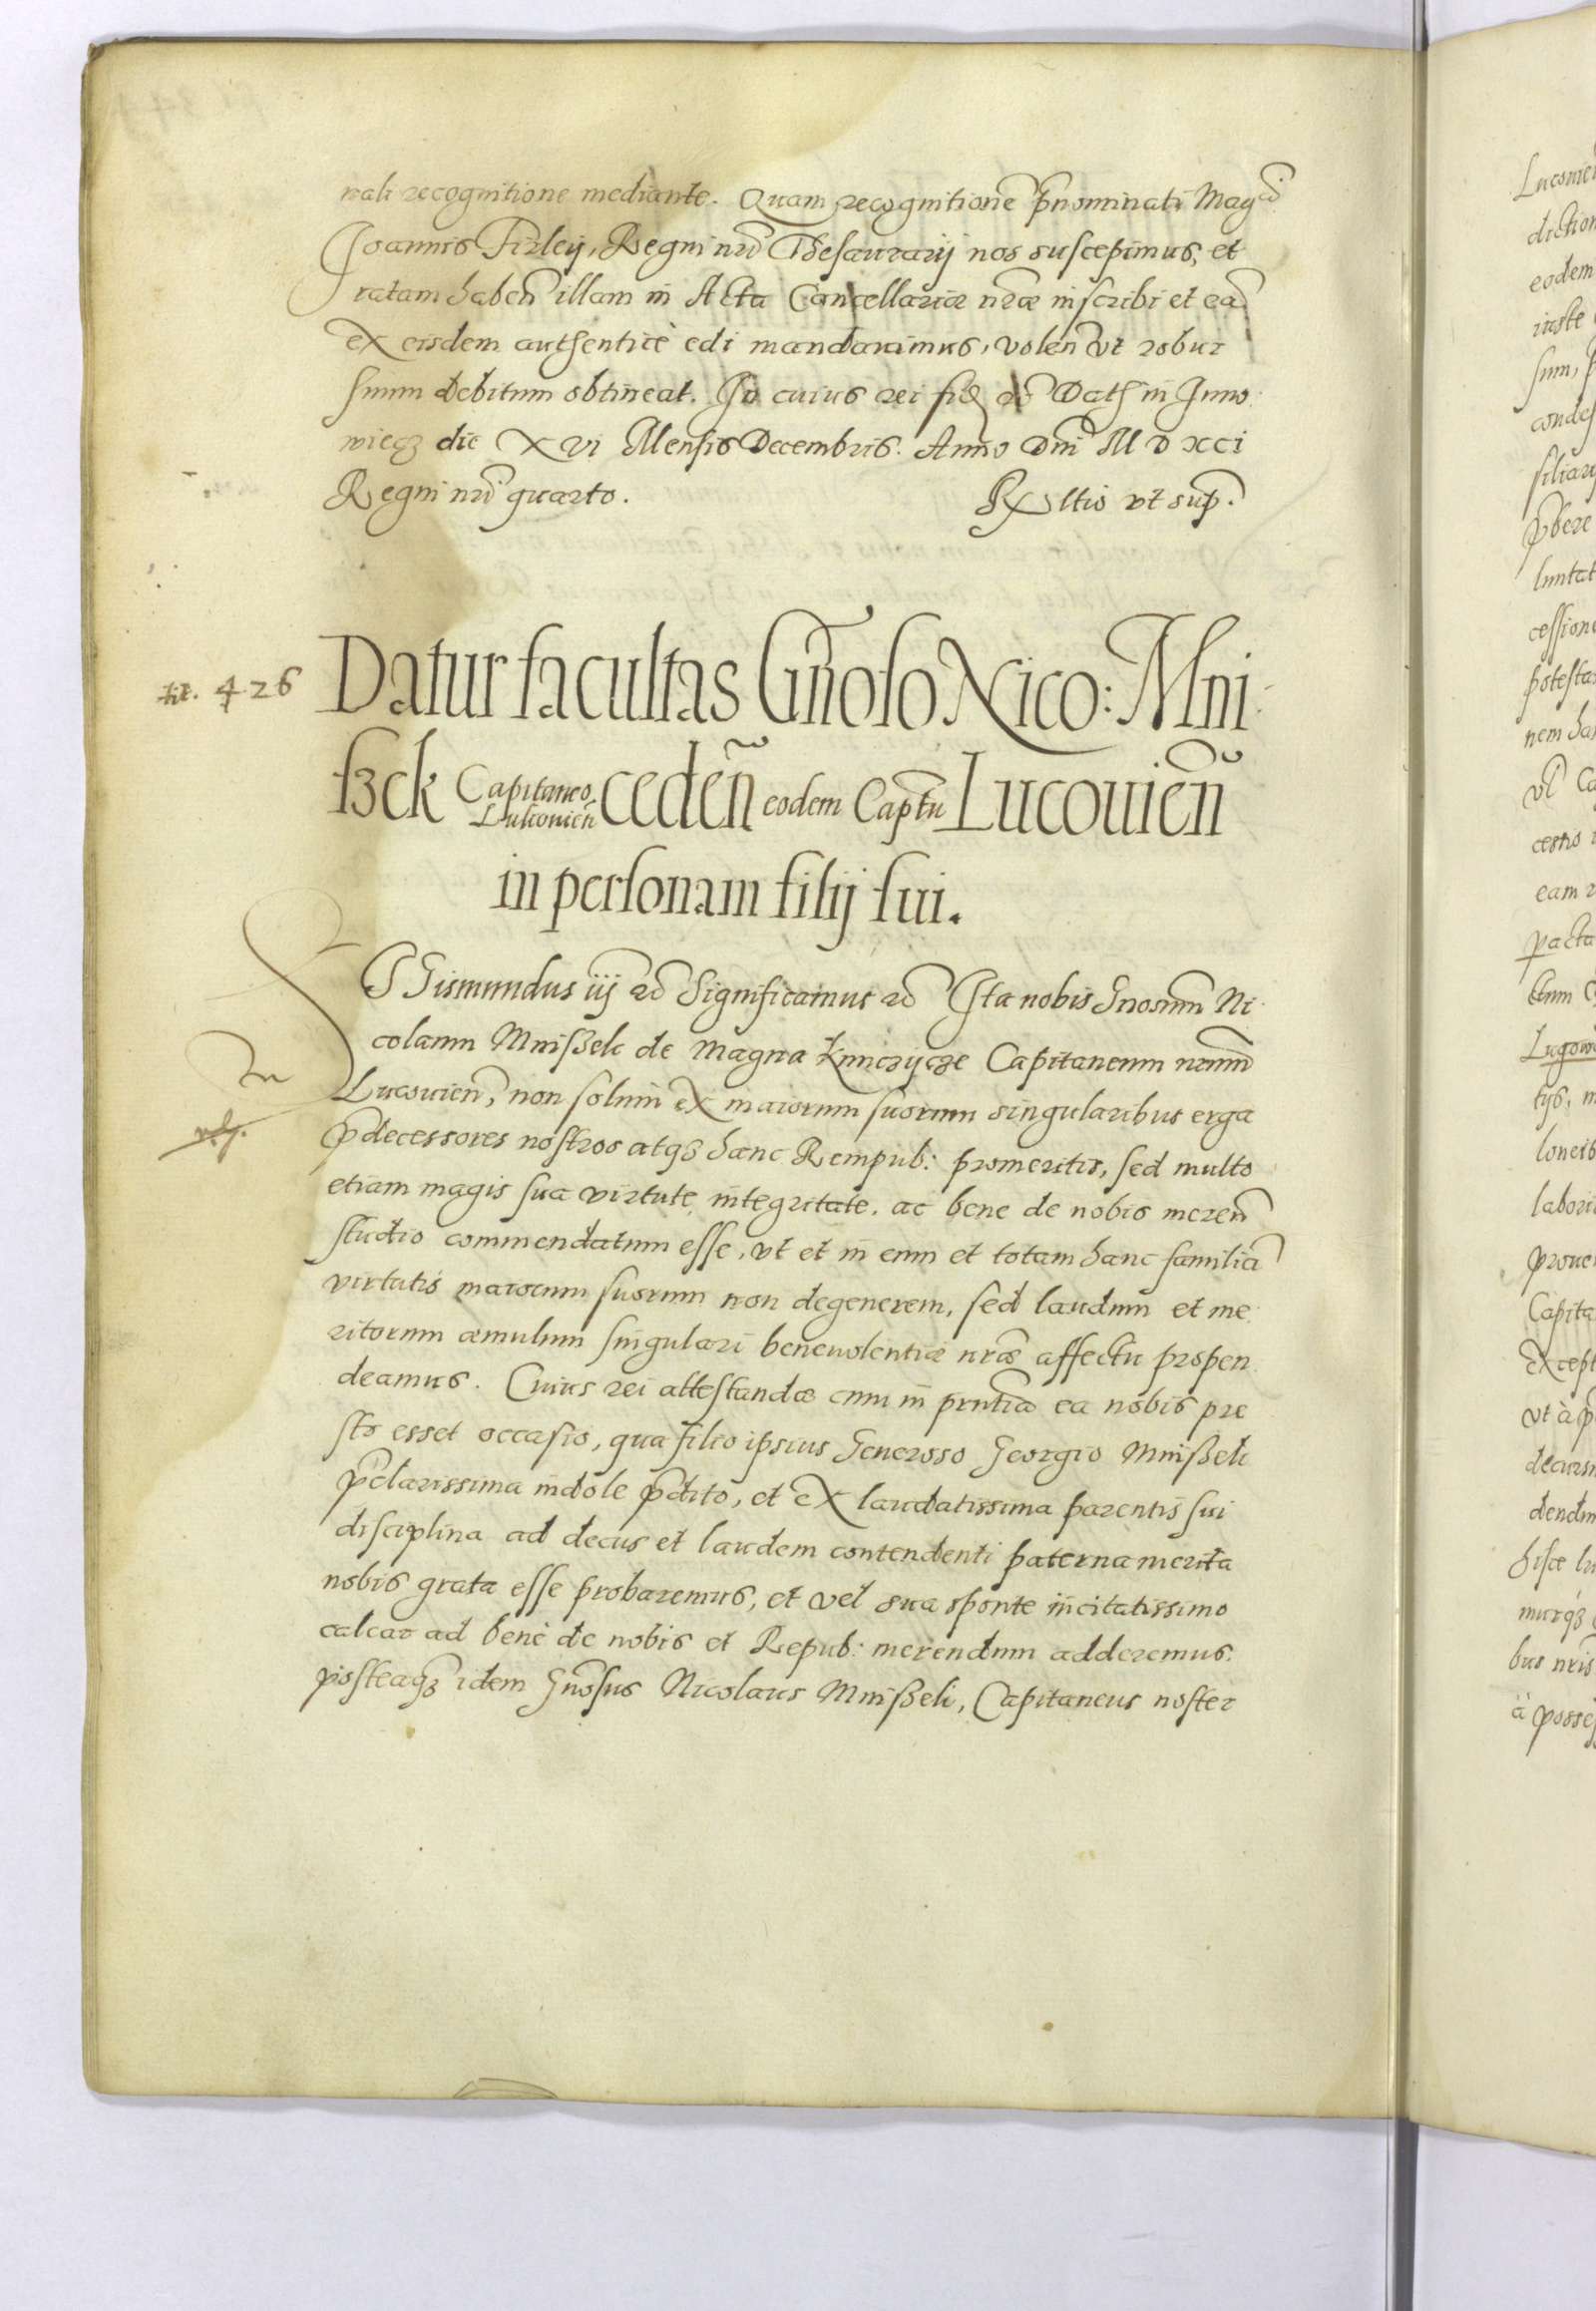 nali recognitione mediante. Quam recognitionẽ p̃nominati Magci
Joannis Firleij, Regni nr̃i Thesaurarij nos suscepimus, et
ratam haben̄ illam in Acta Cancellariæ nr̃æ inscribi et eã
ex eisdem authenticè edi mandauimus, volen̄ vt robur
suum debitum obtineat. In cuius rei fid̃
wicz die xvi Mensis Decembris. Anno Dni M D XCI
Regni nr̃i quarto. Rx ltio vt sup.
nr. 426
Datur facultas Gñoso Nico: Mni-
szek Capitaneo Lukouien̄ ceden̄ eodem Captu Lucouien̄
in personam filij sui.
SGismundus iij ec Significamus ec Ita nobis Gnosum Ni-
colaum Mnißek de Magna Kunczycze Capitaneum nrum̃
Lucouien̄, non solum ex maiorum suorum singularibus erga
p̃decessores nostros atq3 hanc Rempub: promeritis, sed multo
etiam magis sua virtute, integritate, ac bene de nobis meren̄
studio commendatum esse, vt et in eum et totam hanc familiã
virtutis maiorum suorum non degenerem, sed laudum et me-
ritorum æmulum singulari beneuolentiæ nr̃æ affectu propen-
deamus. Cuius rei attestandæ cum in prñtia ea nobis præ
sto esset occasio, qua filio ipsius Generoso Georgio Mnißek
p̃clarissima indole p̃dito, et ex laudatissima parentis sui
disciplina ad decus et laudem contendenti paterna merita
nobis grata esse probaremus, et vel sua sponte incitatissimo
calcar ad benè de nobis et Repub: merendum adderemus.
posteaq3 idem Gnosus Nicolaus Mnißek, Capitaneus noster